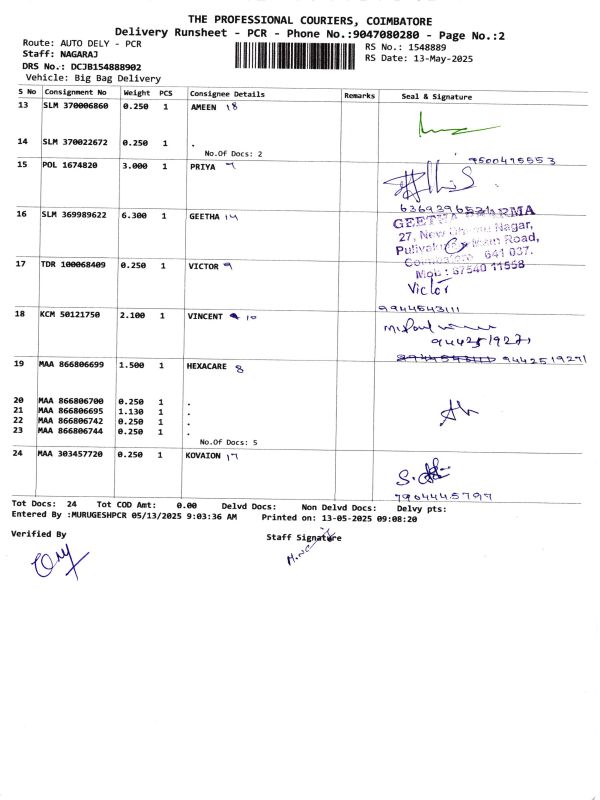 THE PROFESSIONAL COURIERS, COIMBATORE
Delivery Runsheet - PCR - Phone No.:9047080280 - Page No.:2
Route: AUTO DELY - PCR
Staff: NAGARAJ
DRS No.: DCJB154888902
Vehicle: Big Bag Delivery
RS No.: 1548889
RS Date: 13-May-2025
S No Consignment No Weight PCS Consignee Details Remarks Seal & Signature
13 SLM 370006860 0.250 1 AMEEN 18
14 SLM 370022672 0.250 1 .
No.Of Docs: 2
9500495553
15 POL 1674820 3.000 1 PRIYA 7
6369396531
16 SLM 369989622 6.300 1 GEETHA 14
GEETHA PHARMA
Nagar,
Road,
641 037.
Mob : 87540 11558
17 TDR 100068409 0.250 1 VICTOR 9
Victor
9944543111
18 KCM 50121750 2.100 1 VINCENT 10
9442519271
9442519271
19 MAA 866806699 1.500 1 HEXACARE 8
20 MAA 866806700 0.250 1 .
21 MAA 866806695 1.130 1 .
22 MAA 866806742 0.250 1 .
23 MAA 866806744 0.250 1 .
No.Of Docs: 5
24 MAA 303457720 0.250 1 KOVAION 17
7904445799
Tot Docs: 24 Tot COD Amt: 0.00 Delvd Docs: Non Delvd Docs: Delvy pts:
Entered By :MURUGESHPCR 05/13/2025 9:03:36 AM Printed on: 13-05-2025 09:08:20
Verified By
Staff Signature